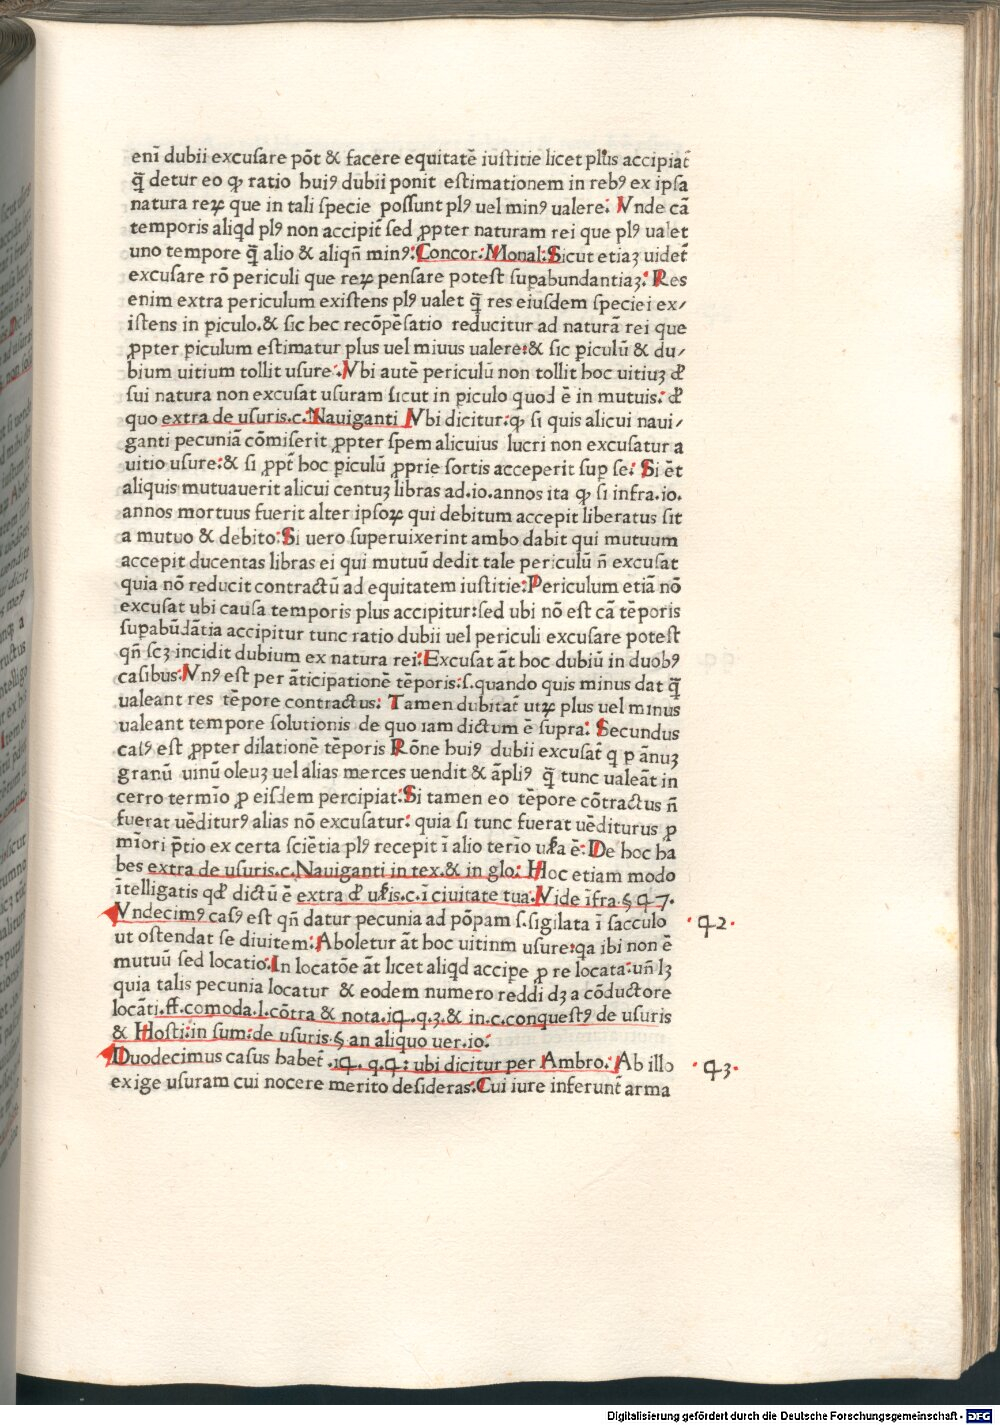 enī dubii excuſare põt & facere equitatē iuſtitie licet plus accipiat̄
q̃ detur eo ꝙ ratio huiꝰ dubii ponit eſtimationem in rebꝰ ex ipſa
natura reꝝ que in tali ſpecie poſſunt plꝰ uel minꝰ ualere: Vnde cā
temporis aliqd plꝰ non accipit̄ ſed ꝓpter naturam rei que plꝰ ualet
uno tempore q̃ alio & aliqñ minꝰ: Concor: Monal: Sicut etiaꝫ uidet̄
excuſare rõ periculi que reꝝ penſare poteſt ſupabundantiaꝫ: Res
enim extra periculum exiſtens plꝰ ualet q̃ res eiuſdem ſpeciei ex/
iſtens in piculo.& ſic hec recõpēſatio reducitur ad naturā rei que
ꝓpter piculum eſtimatur plus uel miuus ualere:& ſic piculū & du/
bium uitium tollit uſure: Vbi autē periculū non tollit hoc uitiuꝫ đ
ſui natura non excuſat uſuram ſicut in piculo quod ē in mutuis: đ
quo extra de uſuris.c. Nauiganti Vbi dicitur:ꝙ ſi quis alicui naui/
ganti pecuniā cõmiſerit ꝓpter ſpem alicuius lucri non excuſatur a
uitio uſure:& ſi ꝓpt̄ hoc piculū ꝓprie ſortis acceperit ſup ſe: Si ēt
aliquis mutuauerit alicui centuꝫ libras ad.10.annos ita ꝙ ſi infra.10.
annos mortuus fuerit alter ipſoꝝ qui debitum accepit liberatus ſit
a mutuo & debito: Si uero ſuperuixerint ambo dabit qui mutuum
accepit ducentas libras ei qui mutuū dedit tale periculū ñ excuſat
quia nõ reducit contractū ad equitatem iuſtitie: Periculum etiā nõ
excuſat ubi cauſa temporis plus accipitur:ſed ubi nõ eſt cā tēporis
ſupabūdātia accipitur tunc ratio dubii uel periculi excuſare poteſt
qñ ſcꝫ incidit dubium ex natura rei: Excuſat āt hoc dubiū in duobꝰ
caſibus: Vnꝰ eſt per āticipationē tēporis:ſ.quando quis minus dat q̃
ualeant res tēpore contractus: Tamen dubitat̄ utꝝ plus uel minus
ualeant tempore ſolutionis de quo iam dictum ē ſupra: Secundus
caſꝰ eſt ꝓpter dilationē tēporis Rõne huiꝰ dubii excuſat̄ q p ānuꝫ
granū uinū oleuꝫ uel alias merces uendit & āpliꝰ q̃ tunc ualeāt in
cerro termīo ꝓ eiſdem percipiat: Si tamen eo tēpore cõtractus ñ
fuerat uēditurꝰ alias nõ excuſatur: quia ſi tunc fuerat uēditurus ꝓ
mīori p̄tio ex certa ſciētia plꝰ recepit ī alio terīo uſ̄a ē: De hoc ha
bes extra de uſuris.c. Nauiganti in tex.& in glo: Hoc etiam modo
ītelligatis qđ dictū ē extra đ uſ̄is.c.ī ciuitate tua: Vide īfra.§ 47.
Vndecimꝰ caſꝰ eſt qñ datur pecunia ad põpam ſ.ſigilata ī ſacculo ·42·
ut oſtendat ſe diuitem: Aboletur āt hoc uitinm uſure:qa ibi non ē
mutuū ſed locatio: In locatõe āt licet aliqd accipe ꝓ re locata:uñ lꝫ
quia talis pecunia locatur & eodem numero reddi dꝫ a cõductore
locāti.ff.comoda.l.cõtra & nota.14.q.3.& in.c.conqueſtꝰ de uſuris
& Hoſti:in ſum:de uſuris.§ an aliquo uer.10:
Duodecimus caſus habet̄ .14. q.4: ubi dicitur per Ambro: Ab illo ·43·
exige uſuram cui nocere merito deſideras: Cui iure inferunt̄ arma
Digitalisierung gefördert durch die Deutsche Forschungsgemeinschaft - DFG